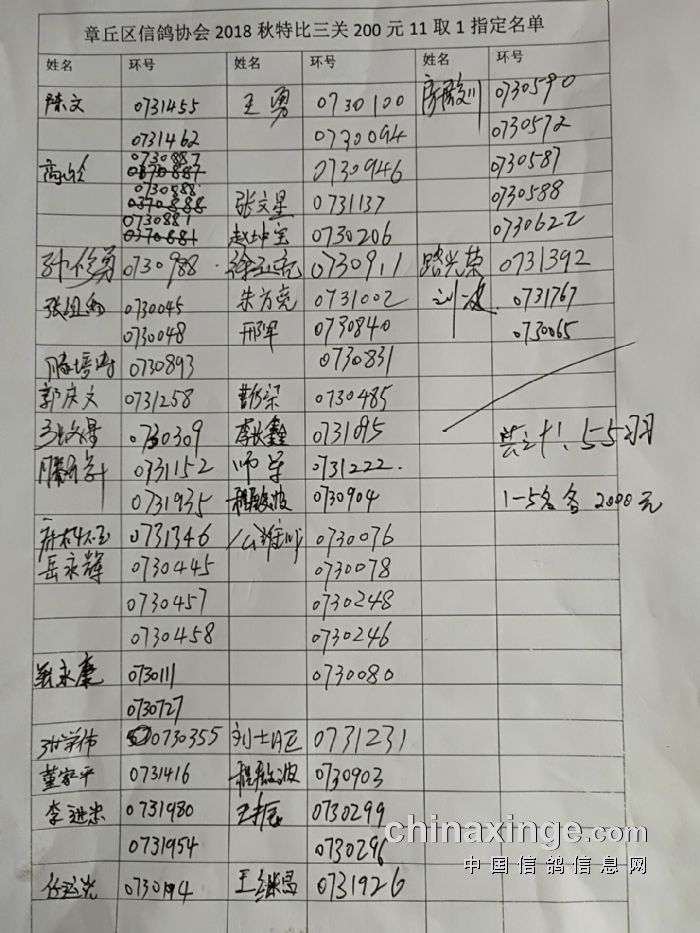 章丘区信鸽协会2018秋特比三关200元11取1指定名单
姓名 环号 姓名 环号 姓名 环号
陈文 0731455 王勇 0730100 0730590
0731462 0730094 0730572
0730887 0370887 0730946 0730587
0730888 0370888 张文星 0731137 0730588
0730881 0370881 赵坤宝 0730206 0730622
孙俊勇 0730988 徐玉亮 0730911 路光荣 0731392
0730045 朱方亮 0731002 刘波 0731767
0730048 邢军 0730840 0730065
滕培涛 0730893 0730831
郭庆文 0731258 0730485
0730309 李长鑫 0731095 共计: 55羽
0731152 师军 0731222
0731935 程敬波 0730904 1-5名各2000元
0731346 公维川 0730076
岳永辉 0730445 0730078
0730457 0730248
0730458 0730246
永康 0730111 0730080
0730727
张学伟 0730355 刘士卫 0731231
董家平 0731416 程敬波 0730903
李进忠 0731980 0730299
0731954 0730296
任延光 0730194 王继昌 0731926
chinaxinge.com
中国信鸽信息网